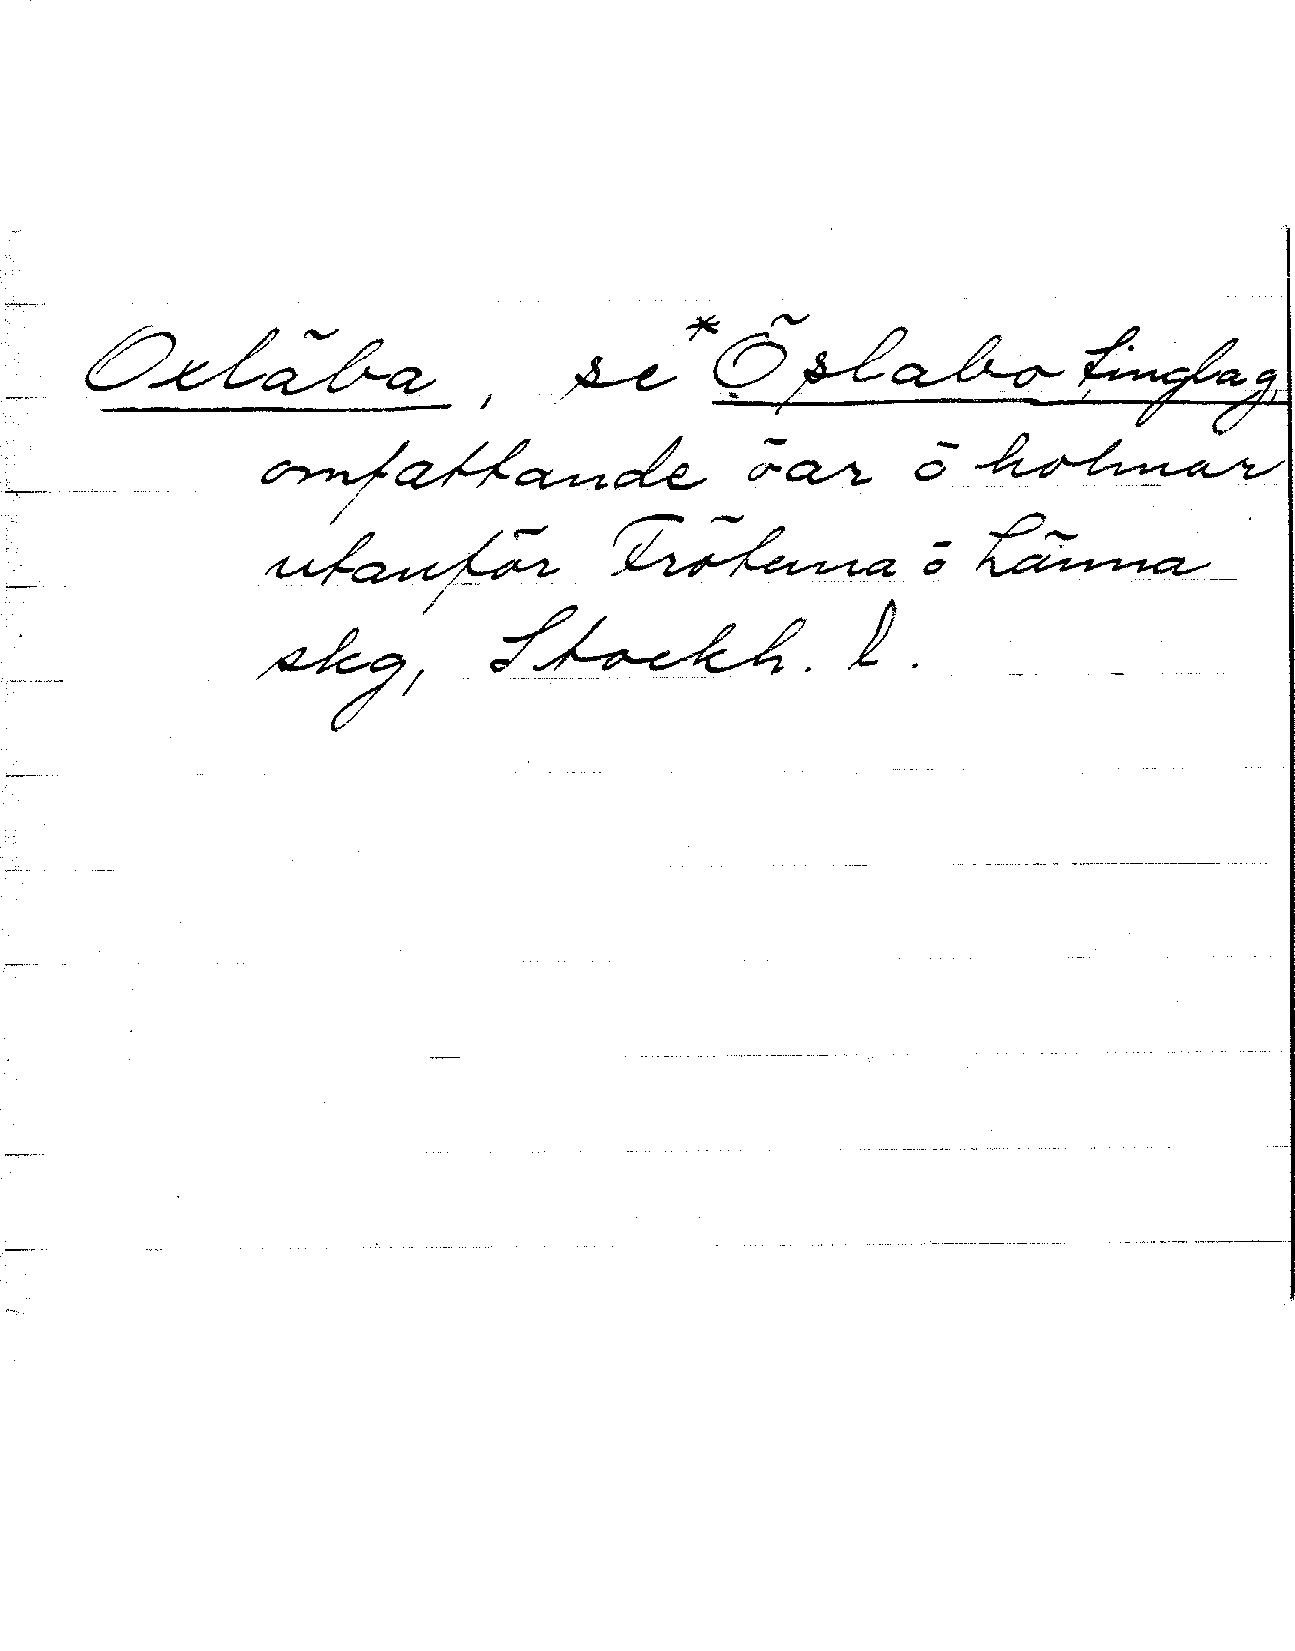 Oxläba, se *Öslabo tinglag,
omfattande öar o holmar
utanför Frötuna o Länna
skg, Stockh. l.